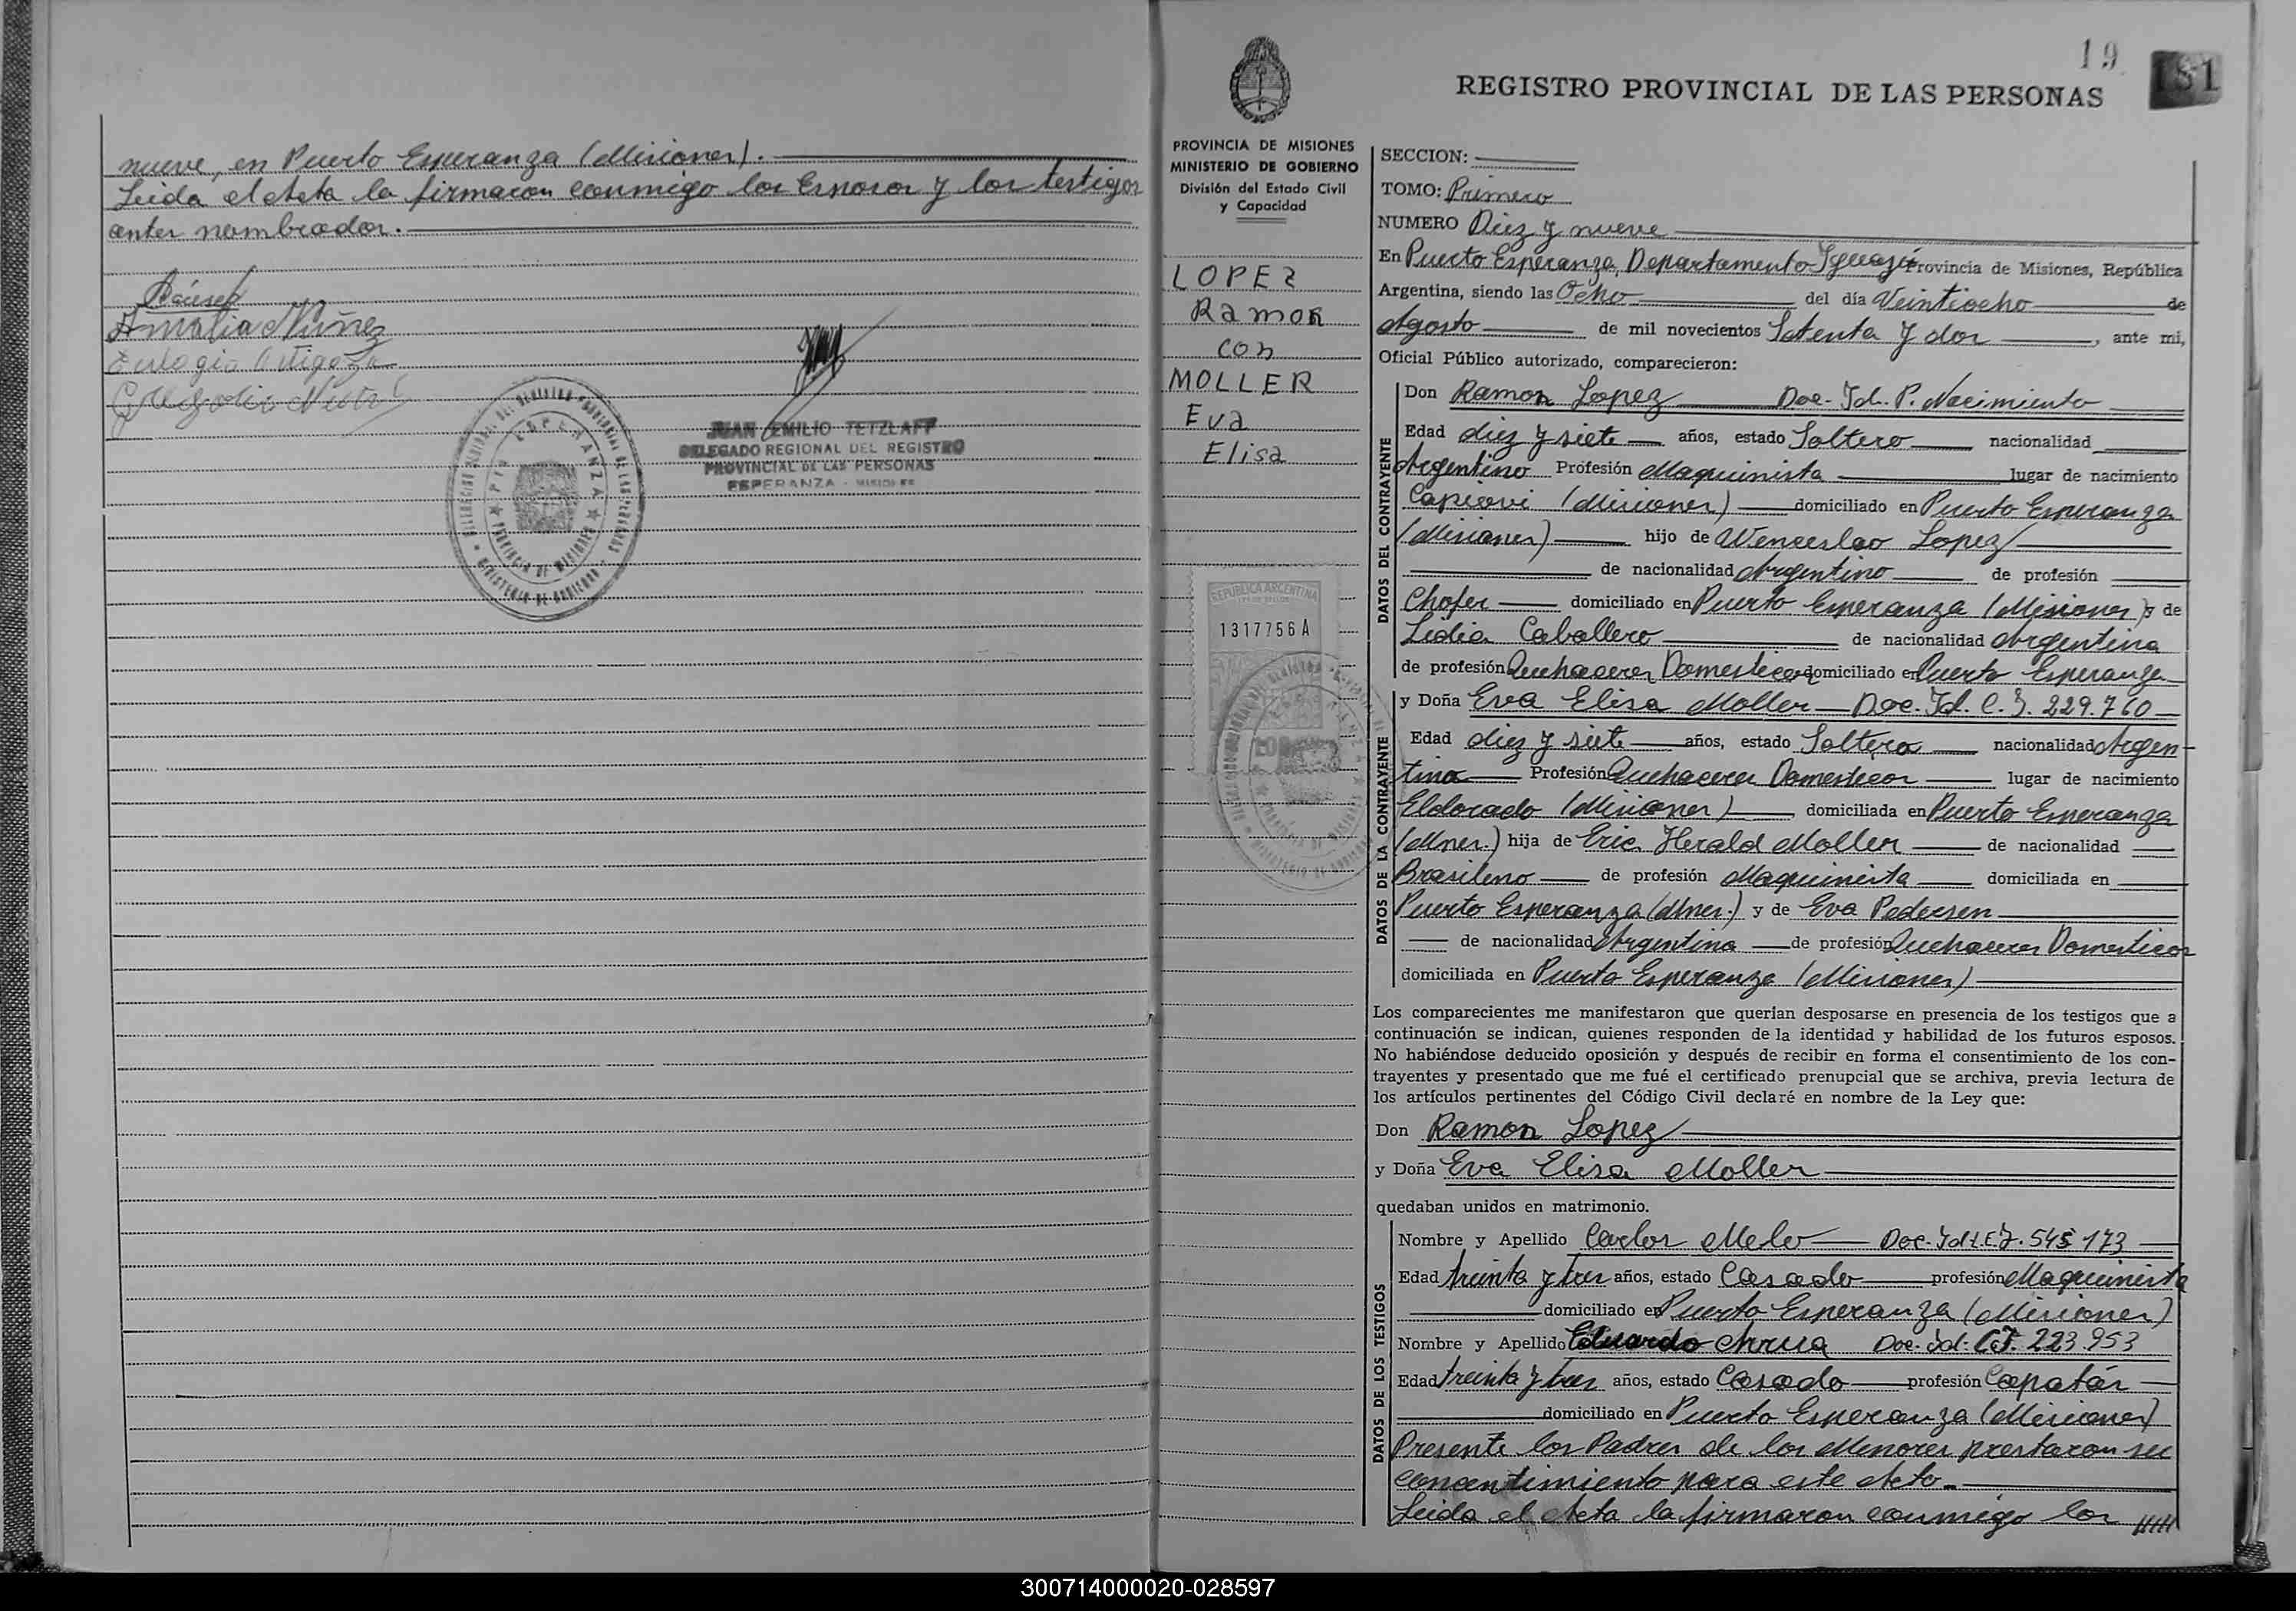 nueve, en Puerto Esperanza (Misiones).
Leida el Acta la firmaron conmigo los Esposos y los testigos
antes nombrados.
Amalia Núñez
Eulogio Ortigoza
JUAN EMILIO TETZLAFF
DELEGADO REGIONAL DEL REGISTRO
PROVINCIAL DE LAS PERSONAS
ESPERANZA - MISIONES
PTO ESPERANZA
PROVINCIA DE MISIONES
MINISTERIO DE GOBIERNO
19
181
REGISTRO PROVINCIAL DE LAS PERSONAS
PROVINCIA DE MISIONES
MINISTERIO DE GOBIERNO
División del Estado Civil
y Capacidad
LOPEZ
Ramon
con
MOLLER
Eva
Elisa
REPUBLICA ARGENTINA
1317756 A
SECCION:
TOMO: Primero
NUMERO Diez y nueve
En Puerto Esperanza, Departamento Iguazú Provincia de Misiones, República
Argentina, siendo las Ocho del día Veintiocho de
Agosto de mil novecientos Setenta y dos, ante mi,
Oficial Público autorizado, comparecieron:
DATOS DEL CONTRAYENTE
Don Ramon Lopez Doc. Id. P. Nacimiento
Edad diez y siete años, estado Soltero nacionalidad
Argentino Profesión Maquinista lugar de nacimiento
Capiovi (Misiones) domiciliado en Puerto Esperanza
(Misiones) hijo de Wenceslao Lopez
de nacionalidad Argentino de profesión
Chofer domiciliado en Puerto Esperanza (Misiones) y de
Lidia Caballero de nacionalidad Argentina
de profesión Quehaceres Domesticos domiciliado en Puerto Esperanza
DATOS DE LA CONTRAYENTE
y Doña Eva Elisa Moller Doc. Id. C.I. 229.760
Edad diez y siete años, estado Soltera nacionalidad Argen-
tina Profesión Quehaceres Domesticos lugar de nacimiento
Eldorado (Misiones) domiciliada en Puerto Esperanza
(Mnes.) hija de Eric Herald Moller de nacionalidad
Brasileno de profesión Maquinista domiciliada en
Puerto Esperanza (Mnes.) y de Eva Pedersen
de nacionalidad Argentina de profesión Quehaceres Domesticos
domiciliada en Puerto Esperanza (Misiones)
Los comparecientes me manifestaron que querían desposarse en presencia de los testigos que a
continuación se indican, quienes responden de la identidad y habilidad de los futuros esposos.
No habiéndose deducido oposición y después de recibir en forma el consentimiento de los con-
trayentes y presentado que me fué el certificado prenupcial que se archiva, previa lectura de
los artículos pertinentes del Código Civil declaré en nombre de la Ley que:
Don Ramon Lopez
y Doña Eva Elisa Moller
quedaban unidos en matrimonio.
DATOS DE LOS TESTIGOS
Nombre y Apellido Carlos Melo Doc. Id. L.E. 7.545 173
Edad treinta y tres años, estado Casado profesión Maquinista
domiciliado en Puerto Esperanza (Misiones)
Nombre y Apellido Eduardo Arrua Doc. Id. C.I. 223.953
Edad treinta y tres años, estado Casado profesión Capatás
domiciliado en Puerto Esperanza (Misiones)
Presente los Padres de los Menores prestaron su
concentimiento para este Acto.
Leida el Acta la firmaron conmigo los ////
300714000020-028597